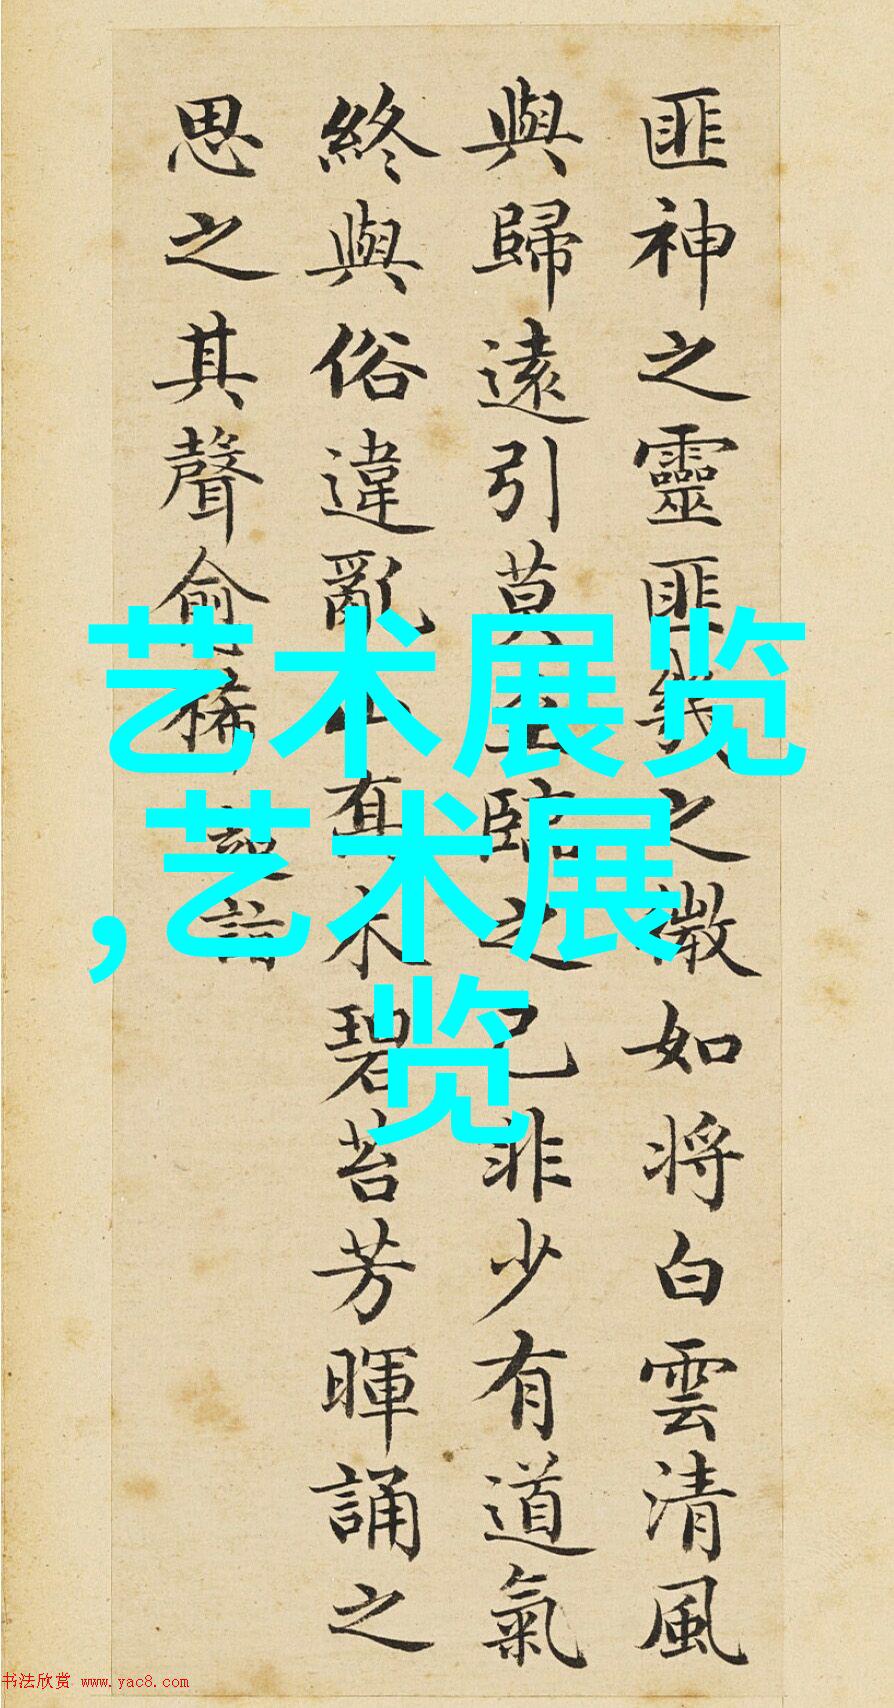 匪神之靈匪幾之微如將白雲清風
與歸遠引莫至臨之已非少有道氣
終與俗違亂山木碧苔芳暉誦之
思之其聲俞稀
超詣
艺术展览
,艺术展
览
书法欣赏 www.yac8.com